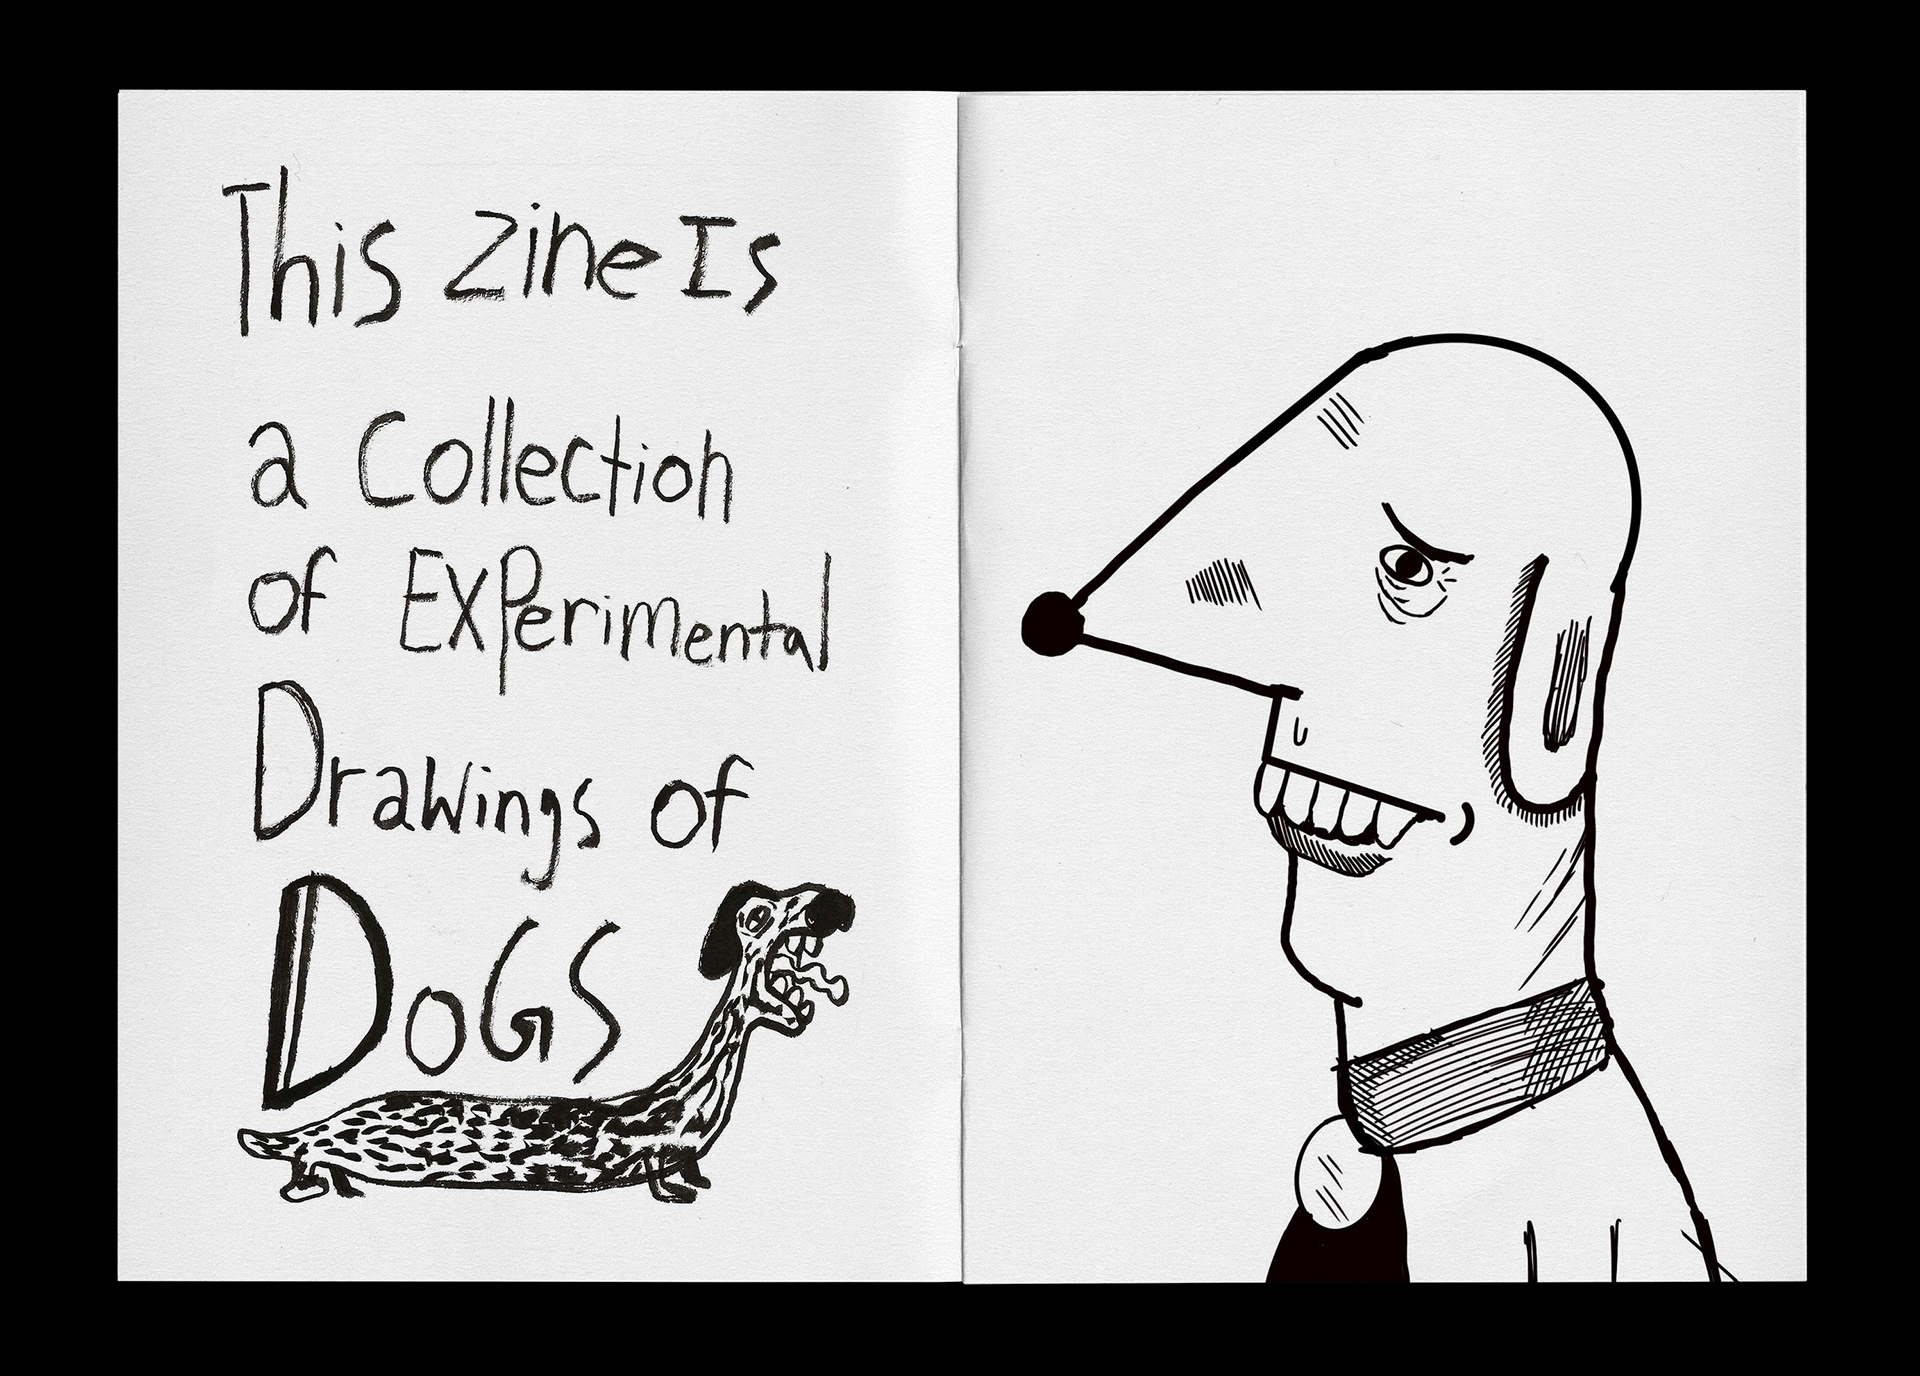 This Zine Is
a Collection
of Experimental
Drawings of
DoGS